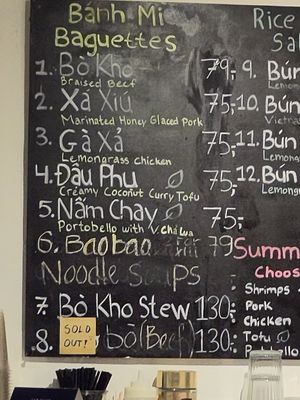 Bánh Mi
Baguettes
1. Bò Kho 79,-
Braised Beef
2. Xá Xíu 75,-
Marinated Honey Glaced Pork
3. Gà Xả 75,-
Lemongrass chicken
4. Đậu Phụ 75,-
Creamy Coconut Curry Tofu
5. Nấm Chay 75,-
Portobello with V. Chá Lua
6. Baobao 79
Noodle Soups
7. Bò Kho Stew 130,-
8. bò (Beef) 130,-
SOLD
OUT!
Rice
Sal
9. Bún
Lemon
10. Bún
Vietna
11. Bún
Lemong
12. Bún
Lemong
Summ
Choos
- Shrimps
- Pork
Chicken
Tofu
Portobello